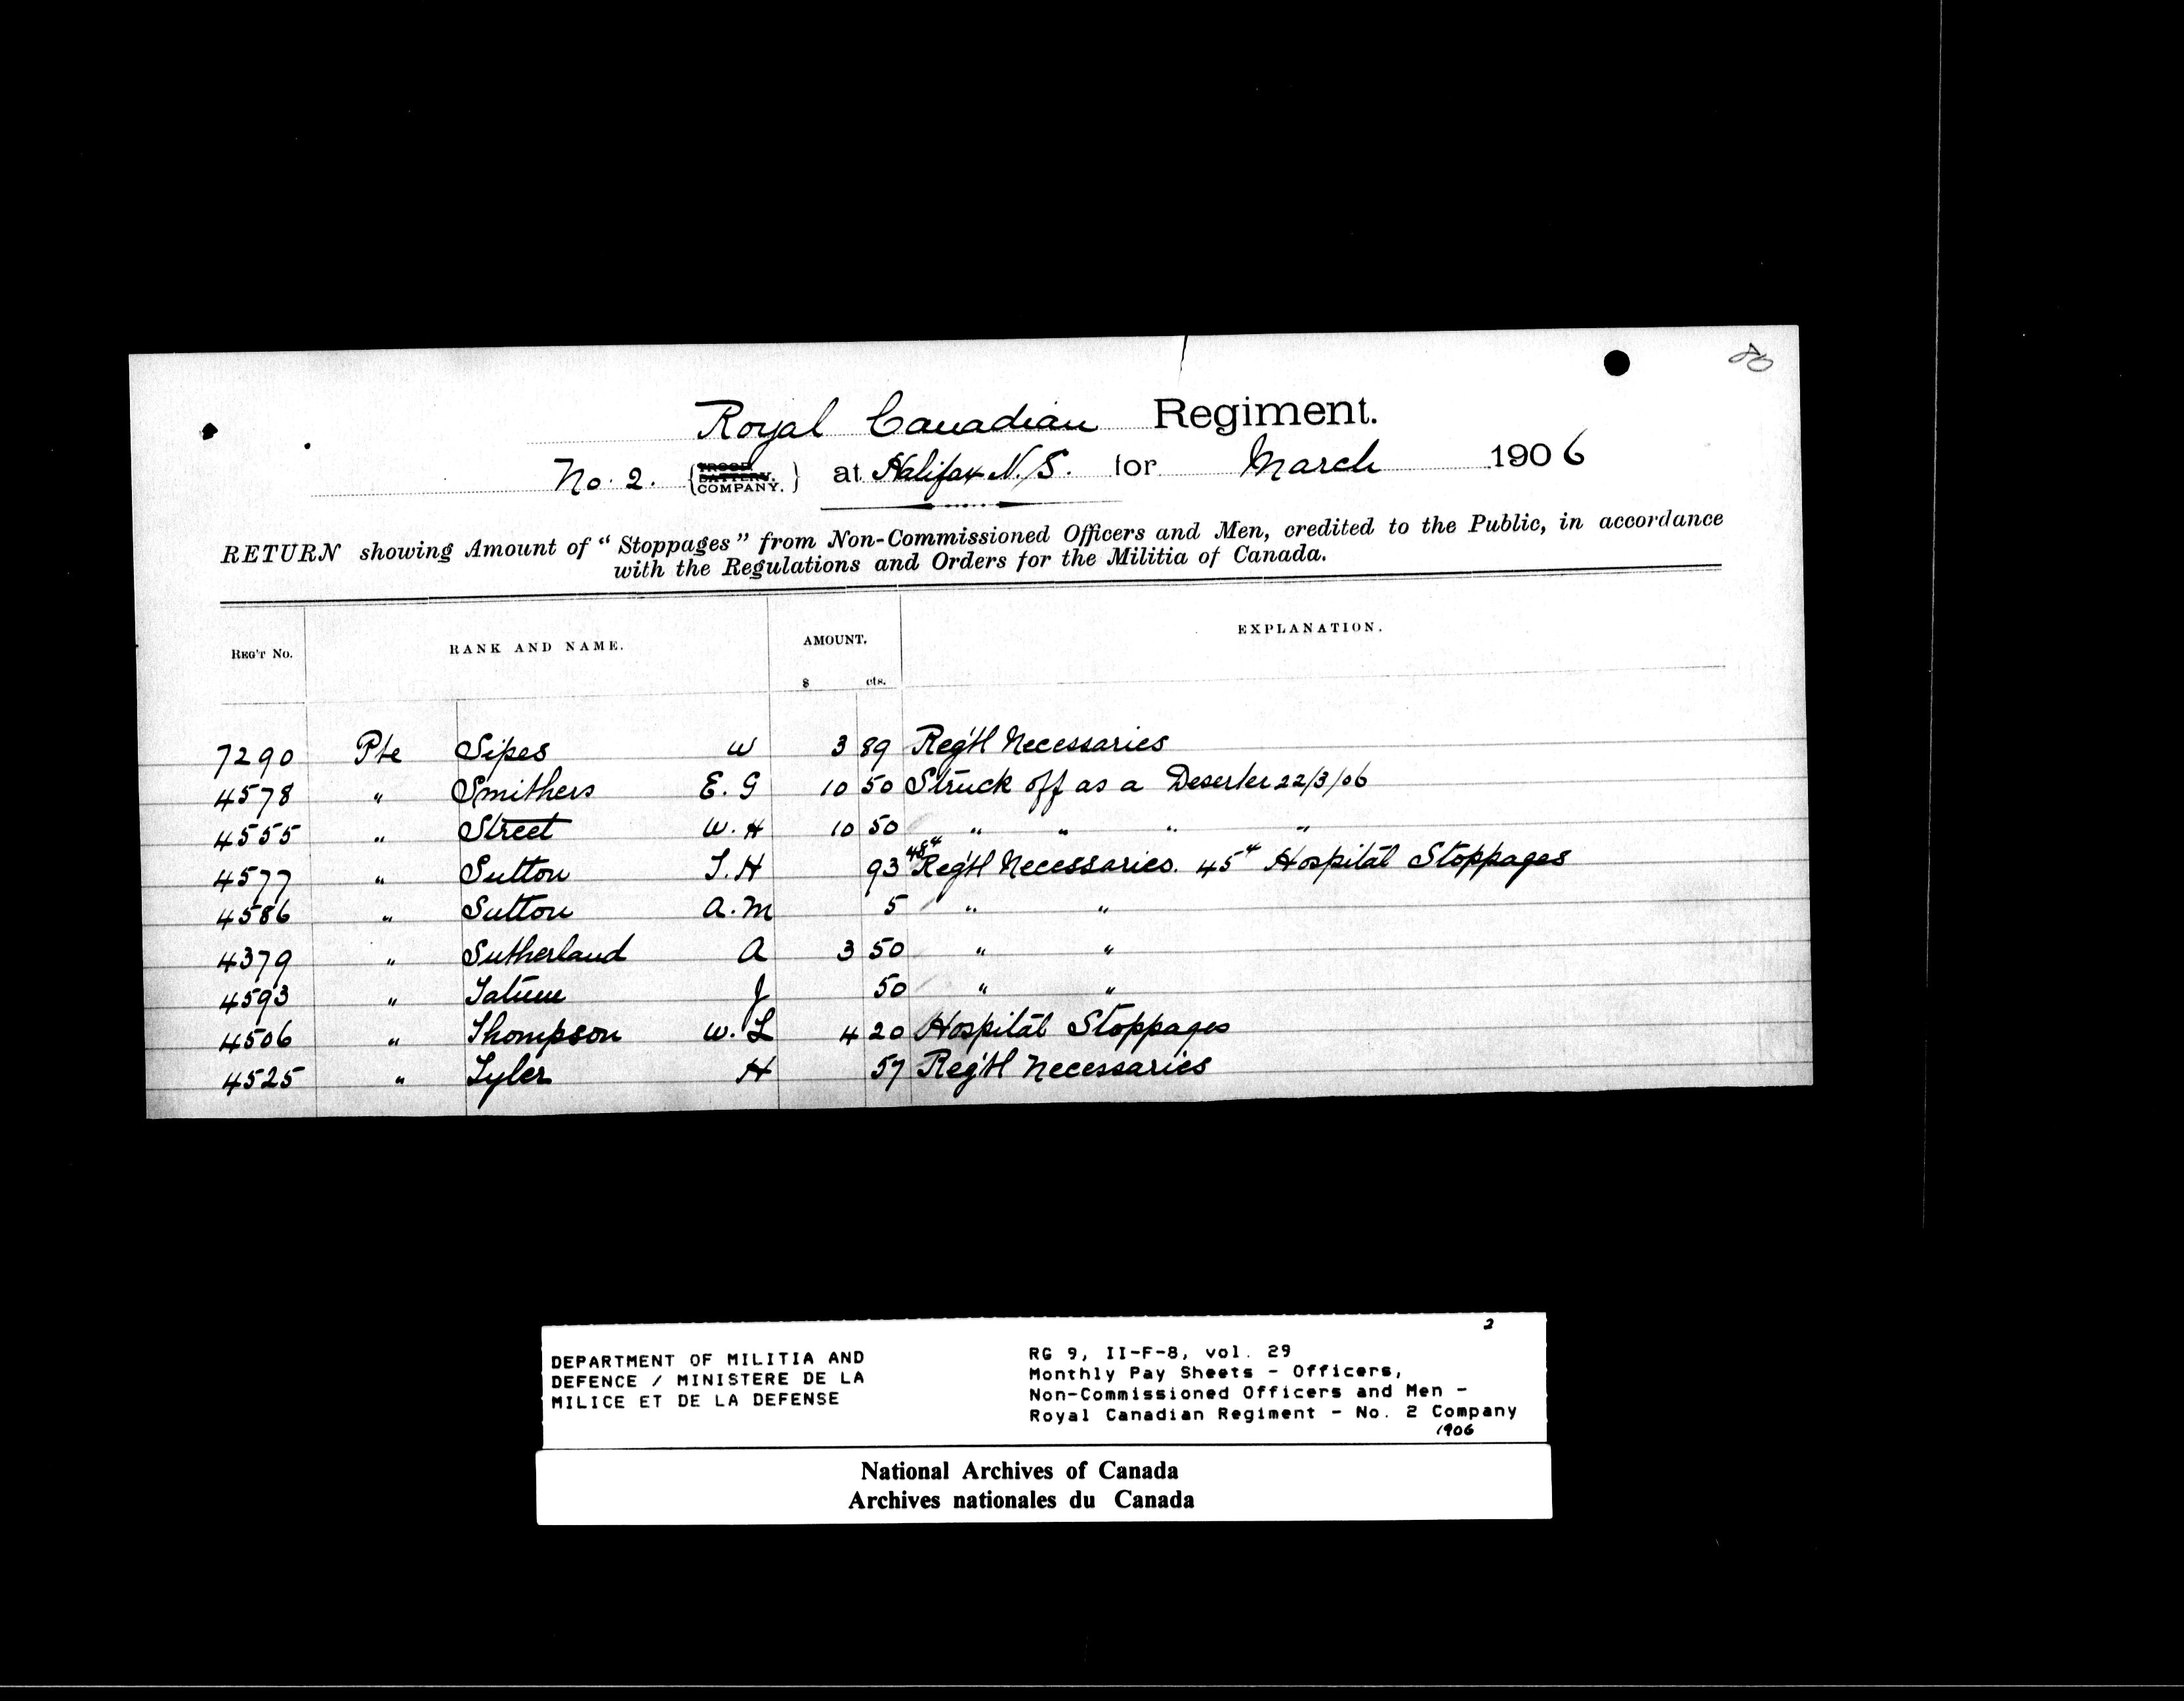 Royal Canadian Regiment.
No. 2. { TROOP. BATTERY. COMPANY. } at Halifax N.S. for March 1906
RETURN showing Amount of "Stoppages" from Non-Commissioned Officers and Men, credited to the Public, in accordance
with the Regulations and Orders for the Militia of Canada.
REG'T No. RANK AND NAME. AMOUNT. EXPLANATION.
$ cts.
7290 Pte Sipes W 3 89 Reg'tl Necessaries
4578 " Smithers E. G 10 50 Struck off as a Deserter 22/3/06
4555 " Street W. H 10 50 " " " "
4577 " Sutton T. H 93 48¢ Reg'tl Necessaries. 45¢ Hospital Stoppages
4586 " Sutton A. M 5 " "
4379 " Sutherland A 3 50 " "
4593 " Tatum J 50 " "
4506 " Thompson W. L 4 20 Hospital Stoppages
4525 " Tyler H 57 Reg'tl Necessaries
2
DEPARTMENT OF MILITIA AND
DEFENCE / MINISTERE DE LA
MILICE ET DE LA DEFENSE
RG 9, II-F-8, vol. 29
Monthly Pay Sheets - Officers,
Non-Commissioned Officers and Men -
Royal Canadian Regiment - No. 2 Company
1906
National Archives of Canada
Archives nationales du Canada